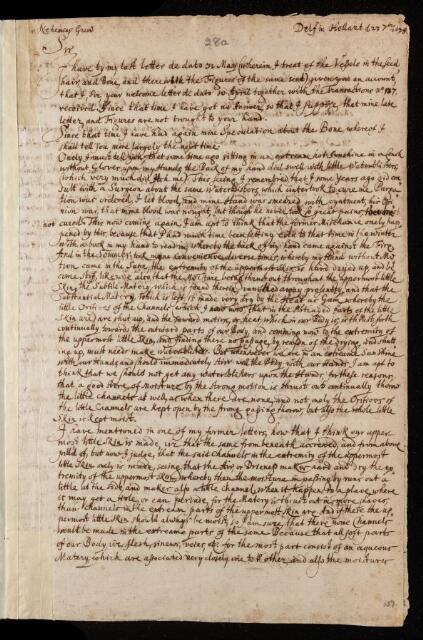 Nehemias Grew
Delf in Holland
280
Sir
I have by my last letter de dato 31 May (wherein I treat of the Vessels in the seed
hairs, and Bone, and therewith the Figures of the same send) given you an account,
that I for your welcome letter de dato 20 April together with the Transactions no 137.
received. Since that time I have got no Answer, so that I suppose, that mine late
letter, and Figures are not brought to your hand.
Since that time I have had again some Speculation about the Bone, whereof I
shall tell you more largely the next time.
Onely I must tell you, that some time ago sitting in an extream hot Sunshine in a Coach
without Gloves upon my Hands, the back of my hand did swell with little Waterblisters
(which very much itched me). This seeing I remembred that I some years ago did con
sult with a Surgeon about the same Waterblisters, which undertook to cure me. Purga
tion was ordered, I let blood, and mine Hand was smeared with oyntment, his Opi
nion was, that mine blood was nought, but though he never took so great pains
not cured. This now coming again I am apt to think that the former mischance onely hap
pened by this, because that I had much time been setting cold to that time in the winter,
with a book in my hand to reading whereby the back of my hand came against the Fire.
And in the Sommer took my convenience diverse times, whereby my Hand without Mo
tion came in the Sun, the extremity of the uppermost skin is so hard dryed up and be
come stif, like wise also that the hot time being thrust out throughout the uppermost little
Skin, the Subtile Matery, which is found therein, vanished away presently, and that the
Substantial Matery, which is left is made very dry by the Heat or Sun, whereby the
little Orifices of the Channels (which I now most that in the Extended parts of the little
Skin are) are shut up, and the Inward motion, or heat, which in our Body is, is thrust forth
continually towards the outward parts of our body, and comming now to the extremity of
the uppermost little Skin, and finding there no passage, by reason of the drying, and shutt
ing up, must needs make waterblisters. But whenever we are in an extreame Sunshine
with our Hands, and should immediately stirr and the Body with our Hands, I am apt to
think that we should not get any waterblisters upon the Hands, for these reasons,
that a good store of moisture by the strong motion is thrust out continually throw
the little channels as well, as when there are none, and not only the Orifices of
the little Channels are kept open by the strong gaping thorow, but also the whole little
Skin is kept moist.
I have mentioned in one of my former letters, how that I think our upper
most little Skin is made, viz that the same from beneath accreved, and from above
pilled of, but now I judge, that the said channels in the extremity of the uppermost
little Skin onely is made, seeing that the Air or Driness maketh hard and dry the ex
tremity of the uppermost Skin, whereby then the moisture in passing by runs out a
little at the side, and maketh also a little channel, when it happens to a place, where
it may get a Hole, or can pervade, for the Matery is thrust out in more places,
than channels in the extream parts of the uppermost skin are. And if these the up
permost little Skin should always be moist, so I am sure, that there none Channels
would be made in the extream parts of the same because that all soft parts
of our Body viz Flesh, Sinews, veins, etc for the most part consist of an aqueous
Matery which are associated very closely one to th' other, and also the moisture